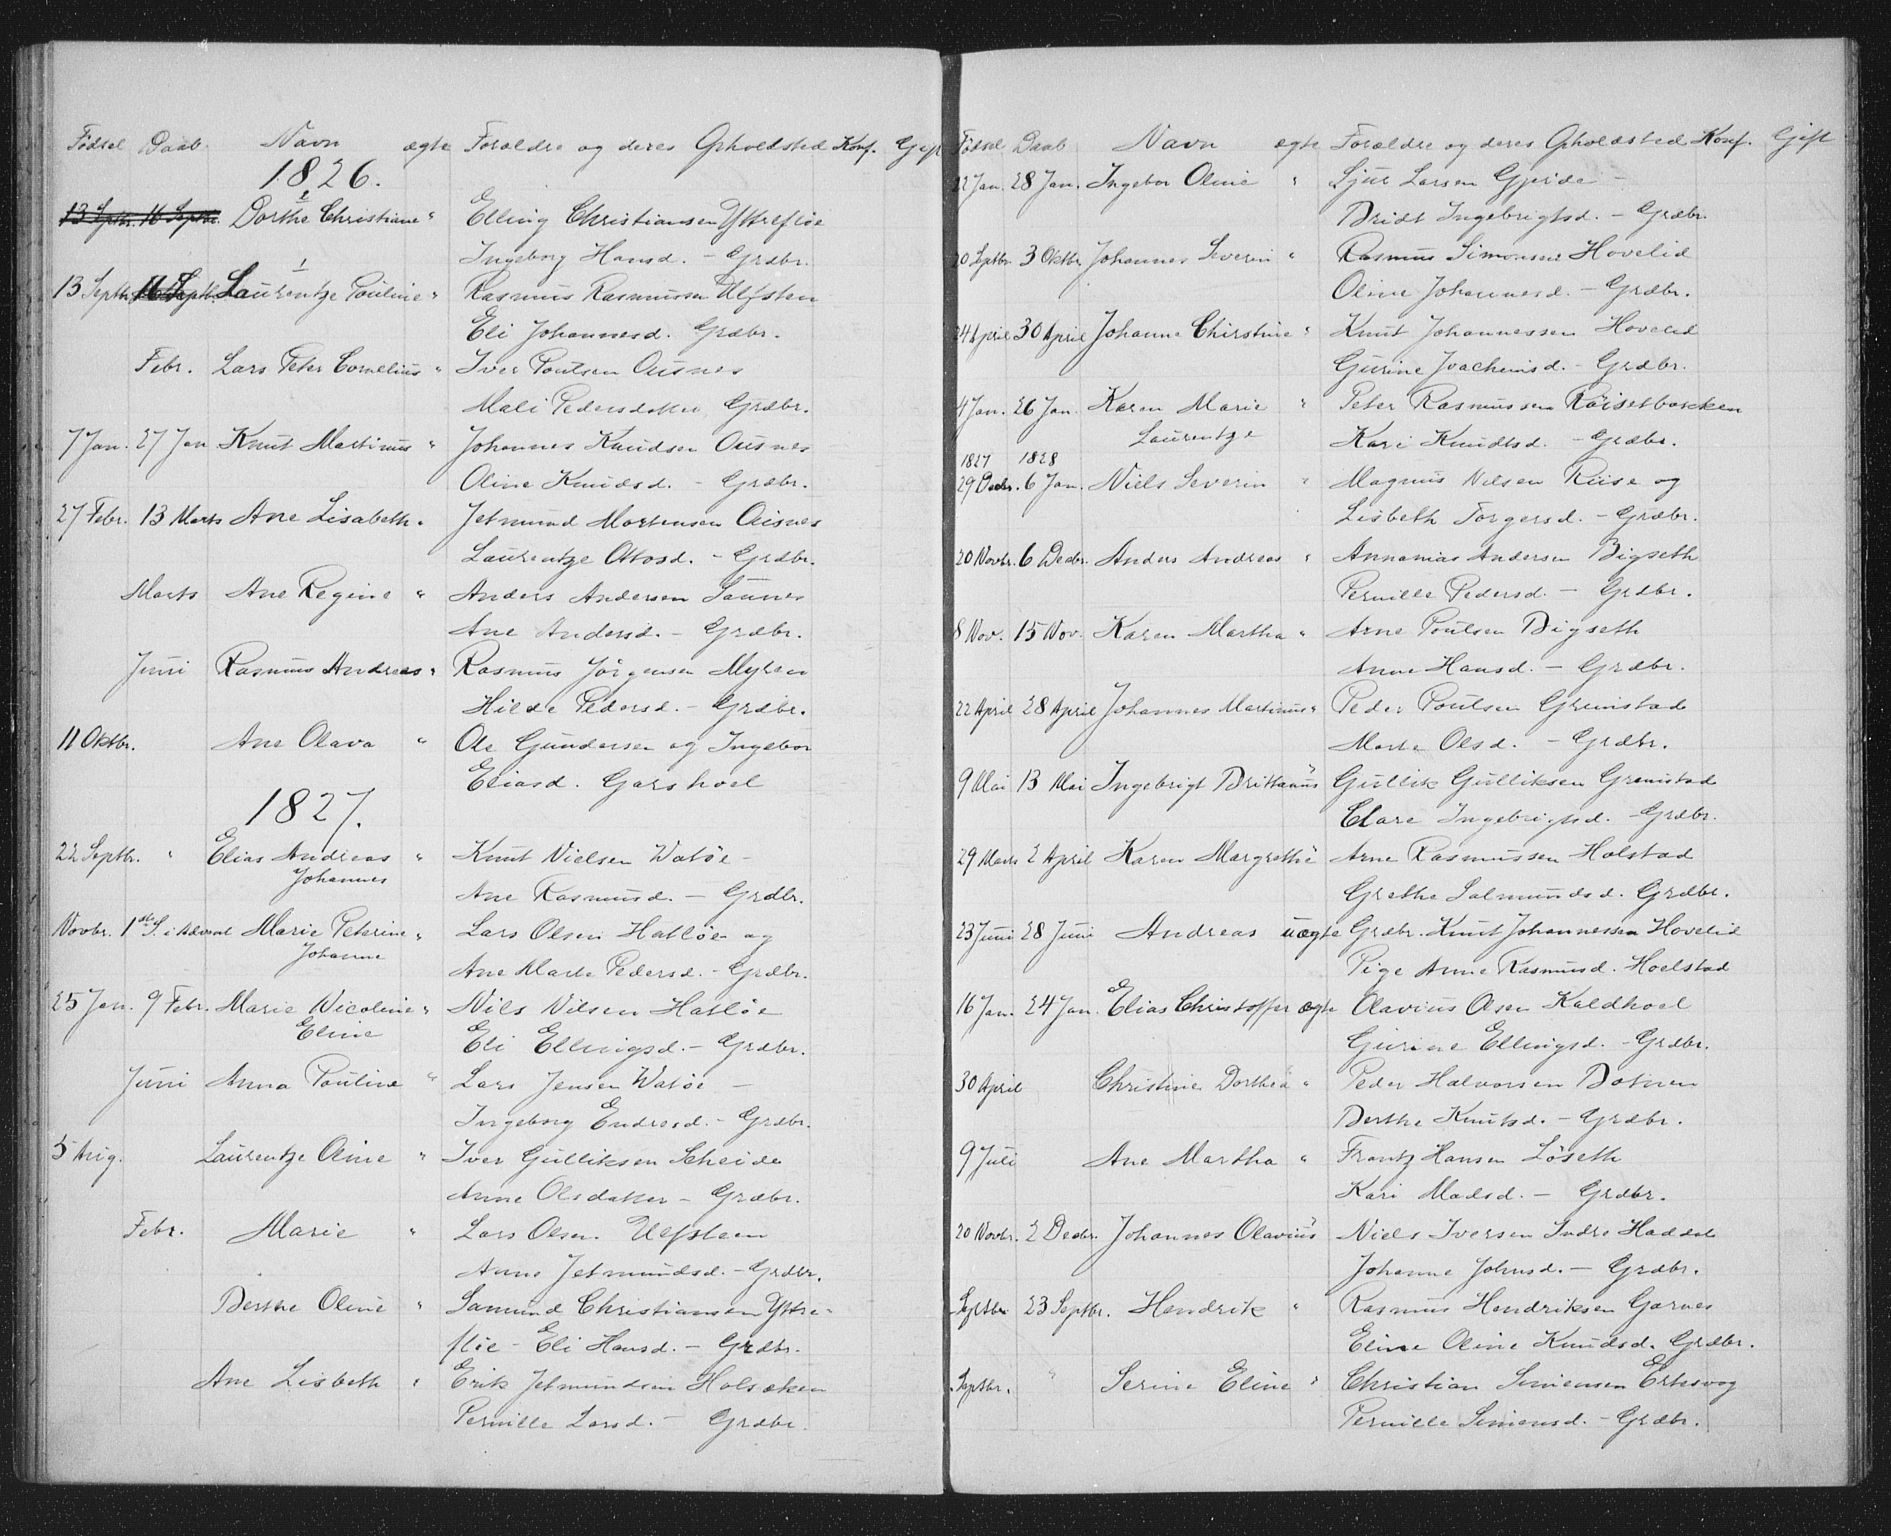 Fødsel Daab Navn ægte Forældre og deres Opholdsted Konf. Gift
1826.
13 Septbr. 16 Septbr. Dorthe Christiane " Elling Christiansen Yttrefløe
Ingeborg Hansd. - Grdbr.
13 Septbr. 16 Septbr. Laurentze Pouline " Rasmus Rasmussen Ulfsten
Eli Johannesd. Grdbr.
Febr. Lars Peter Cornelius " Iver Poulsen Ousnes
Mali Pedersdatter Grdbr.
7 Jan. 27 Jan Knut Martinus " Johannes Knudsen Ousnes
Oline Knudsd. - Grdbr.
27 Febr. 13 Marts Ane Lisabeth " Jetmund Mortensen Ousnes
Laurentze Ottosd. - Grdbr.
Marts Ane Regine " Anders Andersen Saunes
Ane Andersd. - Grdbr.
Juni Rasmus Andreas " Rasmus Jørgensen Myren
Hilde Pedersd. - Grdbr.
11 Oktbr. Ane Olava " Ole Gundersen og Ingebor
Eliasd. Garshoel
1827.
22 Septbr. " Elias Andreas " Knut Nielsen Watøe -
Johannes
Ane Rasmusd. - Grdbr.
Novbr. 1ste S. i Advent Marie Peterine " Lars Olsen Hatløe og
Johanne
Ane Marte Pedersd. - Grdbr.
25 Jan. 9 Febr. Marie Nicoline " Nils Nilsen Hatløe
Eline
Eli Ellingsd. - Grdbr.
Juni Anna Pouline " Lars Jensen Watøe -
Ingeborg Endresd. - Grdbr.
5 Aug. Laurentze Oline " Iver Gulliksen Scheide
Anne Olsdatter - Grdbr.
Febr. Marie " Lars Olsen Ulfsteen
Anne Jetmundsd. - Grdbr.
Berthe Oline " Samund Christiansen Yttre-
fløe - Eli Hansd. - Grdbr.
Ane Lisbeth " Erik Jetmundsen Holsæken
Pernille Larsd. - Grdbr.
Fødsel Daab Navn ægte Forældre og deres Opholdsted Konf. Gift
22 Jan. 28 Jan. Ingebor Oline " Sjur Larsen Gjerde -
Bridt Ingebrigtsd. - Grdbr.
20 Septbr. 3 Oktbr. Johannes Severin " Rasmus Simonsen Hovelid
Oline Johannesd. - Grdbr.
24 April 30 April Johanne Chirstine " Knut Johannessen Hovelid
Gurine Joachimsd. - Grdbr.
4 Jan. 26 Jan. Karen Marie " Peter Rasmussen Röisetbakken
Laurentze Kari Knudtsd. - Grdbr.
1827 1828
29 Decbr. 6 Jan. Niels Severin " Magnus Nilsen Riise og
Lisbeth Torgersd. - Grdbr.
20 Novbr. 6 Decbr. Anders Andreas " Annanias Andersen Bigseth
Pernille Pedersd. - Grdbr.
8 Nov. 15 Nov. Karen Martha " Arne Poulsen Bigseth
Anne Hansd. - Grdbr.
22 April 28 April Johannes Martinus " Peder Poulsen Grimstad
Marte Olsd. - Grdbr.
9 Mai 13 Mai Ingebrigt Brittanus " Gullik Gulliksen Grimstad
Clare Ingebrigtsd. - Grdbr.
29 Marts 2 April Karen Margrethe " Arne Rasmussen Holstad
Grethe Salmundsd. Grdbr.
23 Juni 28 Juni Andreas uægte Grdbr. Knut Johannessen Hovelid
Pige Anne Rasmusd. Hoelstad
16 Jan. 24 Jan. Elias Christoffer ægte Olavius Olsen Kaldhoel
Gurine Ellingsd. - Grdbr.
30 April Christine Dorthea " Peder Halvorsen Botnen
Berthe Knutsd. - Grdbr.
9 Juli Ane Martha " Frantz Hansen Løseth
Kari Madsd. - Grdbr.
20 Novbr. 2 Decbr. Johannes Olavius " Niels Iversen Indre Haddal
Johanne Johnsd. - Grdbr.
Septbr 23 Septbr. Hendrik " Rasmus Hendriksen Garnes
Eline Oline Knudsd. Grdbr.
Septbr. " Serine Eline " Christian Simensen Erksvog
Pernille Simensd. - Grdbr.